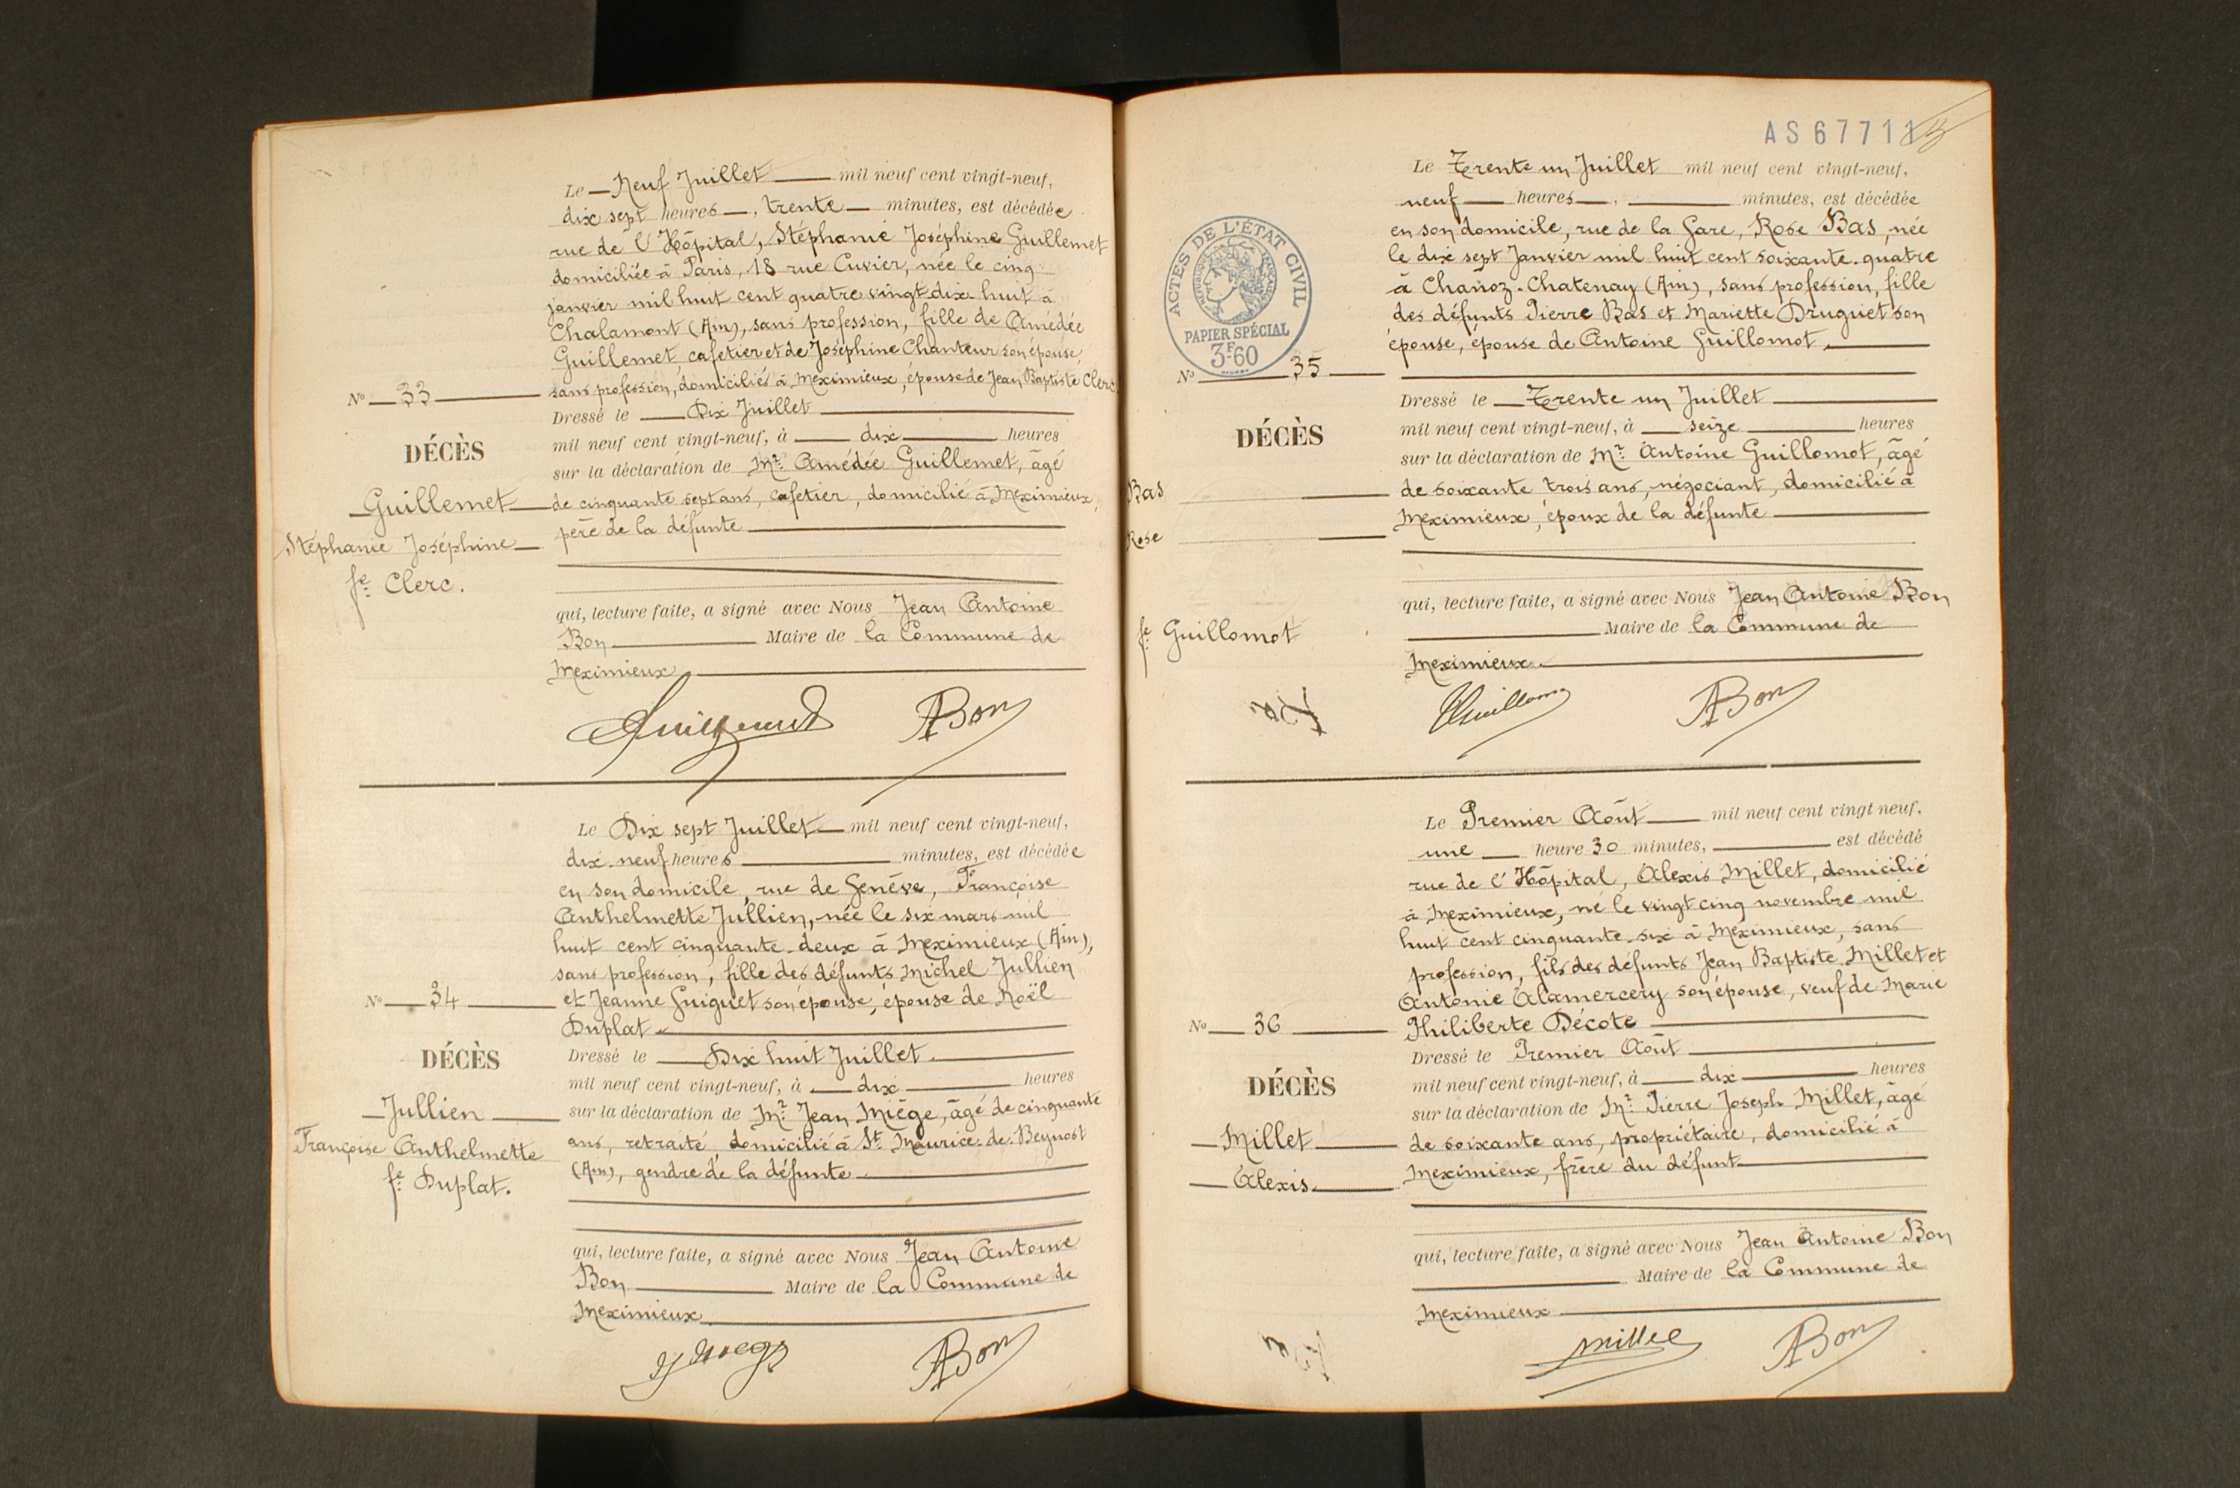 Le Neuf Juillet mil neuf cent vingt-neuf,
dix sept heures, trente minutes, est décédée
rue de l'Hôpital, Stéphanie Joséphine Guillemet
domiciliée à Paris, 18 rue Cuvier, née le cinq
janvier mil huit cent quatre vingt dix-huit à
Chalamont (Ain), sans profession, fille de Amédée
Guillemet cafetier et de Joséphine Chanteur son épouse,
sans profession, domiciliés à Meximieux, épouse de Jean Baptiste Clerc
No 33
Dressé le Dix Juillet
mil neuf cent vingt-neuf, à dix heures
DÉCÈS
sur la déclaration de Mr. Amédée Guillemet, âgé
Guillemet
de cinquante sept ans, cafetier, domicilié à Meximieux,
Stéphanie Joséphine
père de la défunte
fe Clerc.
qui, lecture faite, a signé avec Nous Jean Antoine
Bon Maire de la Commune de
Meximieux
ABon
Le Dix sept Juillet mil neuf cent vingt-neuf,
dix-neuf heures minutes, est décédée
en son domicile, rue de Genève, Françoise
Anthelmette Jullien, née le six mars mil
huit cent cinquante-deux à Meximieux (Ain),
sans profession, fille des défunts Michel Jullien
No 34
et Jeanne Guiguet son épouse, épouse de Noël
Duplat
Dressé le Dix huit Juillet.
DÉCÈS
mil neuf cent vingt-neuf, à dix heures
Jullien
sur la déclaration de Mr. Jean Miège, âgé de cinquante
Françoise Anthelmette
ans, retraité, domicilié à St. Maurice-de-Beynost
fe Duplat.
(Ain), gendre de la défunte
qui, lecture faite, a signé avec Nous Jean Antoine
Bon Maire de la Commune de
Meximieux
ABon
AS67711
Le Trente un Juillet mil neuf cent vingt-neuf,
neuf heures, minutes, est décédée
en son domicile, rue de la Gare, Rose Bas, née
le dix sept Janvier mil huit cent soixante-quatre
à Chanoz-Chatenay (Ain), sans profession, fille
des défunts Pierre Bas et Mariette Druguet son
épouse, épouse de Antoine Guillomot.
ACTES DE L'ÉTAT CIVIL
PAPIER SPÉCIAL
3F60
No 35
Dressé le Trente un Juillet
mil neuf cent vingt-neuf, à seize heures
DÉCÈS
sur la déclaration de Mr. Antoine Guillomot, âgé
Bas
de soixante trois ans, négociant, domicilié à
Rose
Meximieux, époux de la défunte
qui, lecture faite, a signé avec Nous Jean Antoine Bon
Maire de la Commune de
fe Guillomot
Meximieux.
ABon
Le Premier Août mil neuf cent vingt neuf,
une heure 30 minutes, est décédé
rue de l'Hôpital, Alexis Millet, domicilié
à Meximieux, né le vingt cinq novembre mil
huit cent cinquante-six à Meximieux, sans
profession, fils des défunts Jean Baptiste Millet et
Antonie Alamercery son épouse, veuf de Marie
No 36
Philiberte Décote
Dressé le Premier Août
DÉCÈS
mil neuf cent vingt-neuf, à dix heures
sur la déclaration de Mr. Pierre Joseph Millet, âgé
Millet
de soixante ans, propriétaire, domicilié à
Alexis
Meximieux, frère du défunt
qui, lecture faite, a signé avec Nous Jean Antoine Bon
Maire de la Commune de
Meximieux
Millet
ABon